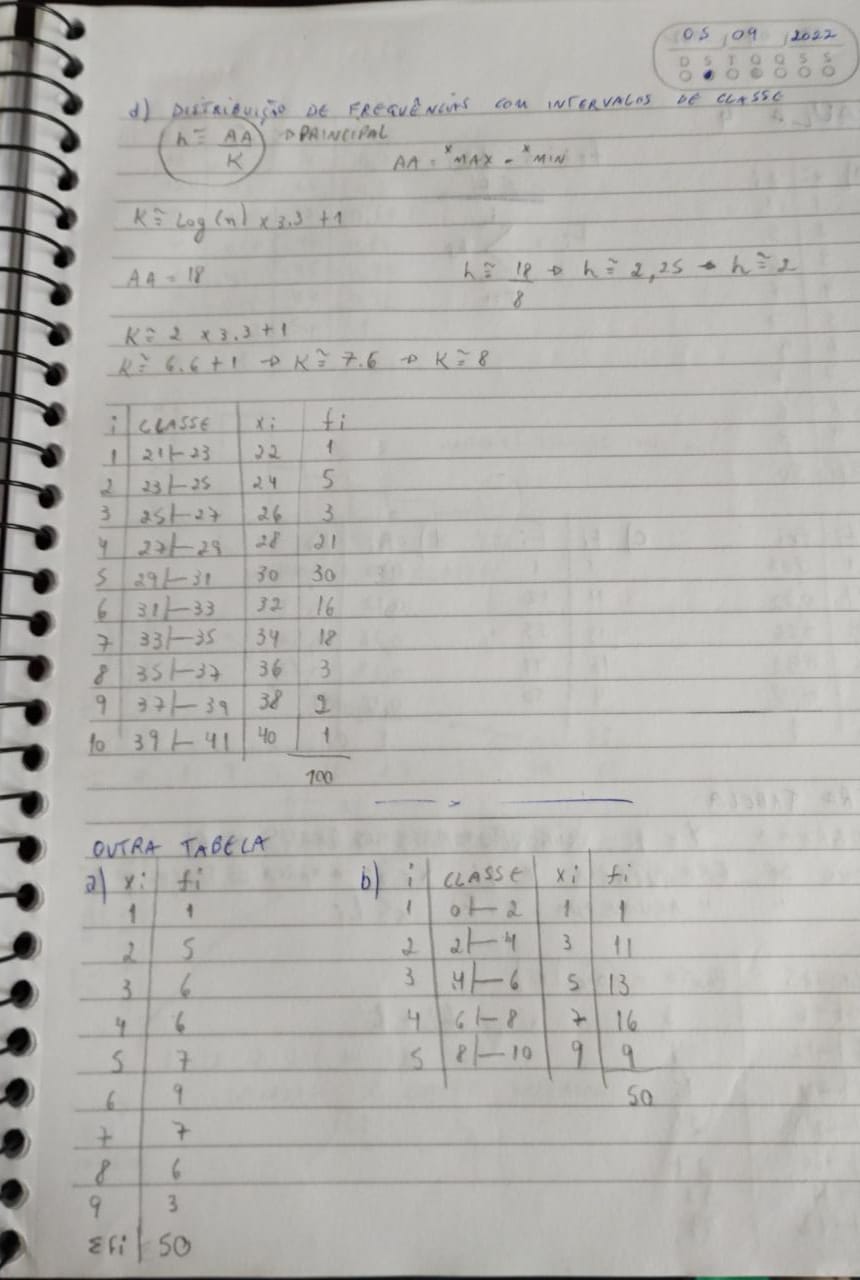 05 09 2022
D S T Q Q S S
d) DISTRIBUIÇÃO DE FREQUÊNCIAS COM INTERVALOS DE CLASSE
h ≅ AA/K → PRINCIPAL
AA = xMAX - xMIN
K ≅ Log(n) x 3.3 + 1
AA = 18
h ≅ 18/8 → h ≅ 2,25 → h ≅ 2
K ≅ 2 x 3.3 + 1
K ≅ 6.6 + 1 → K ≅ 7.6 → K ≅ 8
i CLASSE xi fi
1 21|—23 22 1
2 23|—25 24 5
3 25|—27 26 3
4 27|—29 28 21
5 29|—31 30 30
6 31|—33 32 16
7 33|—35 34 18
8 35|—37 36 3
9 37|—39 38 2
10 39|—41 40 1
100
OUTRA TABELA
a) xi fi
1 1
2 5
3 6
4 6
5 7
6 9
7 7
8 6
9 3
Σfi 50
b) i CLASSE xi fi
1 0|—2 1 1
2 2|—4 3 11
3 4|—6 5 13
4 6|—8 7 16
5 8|—10 9 9
50